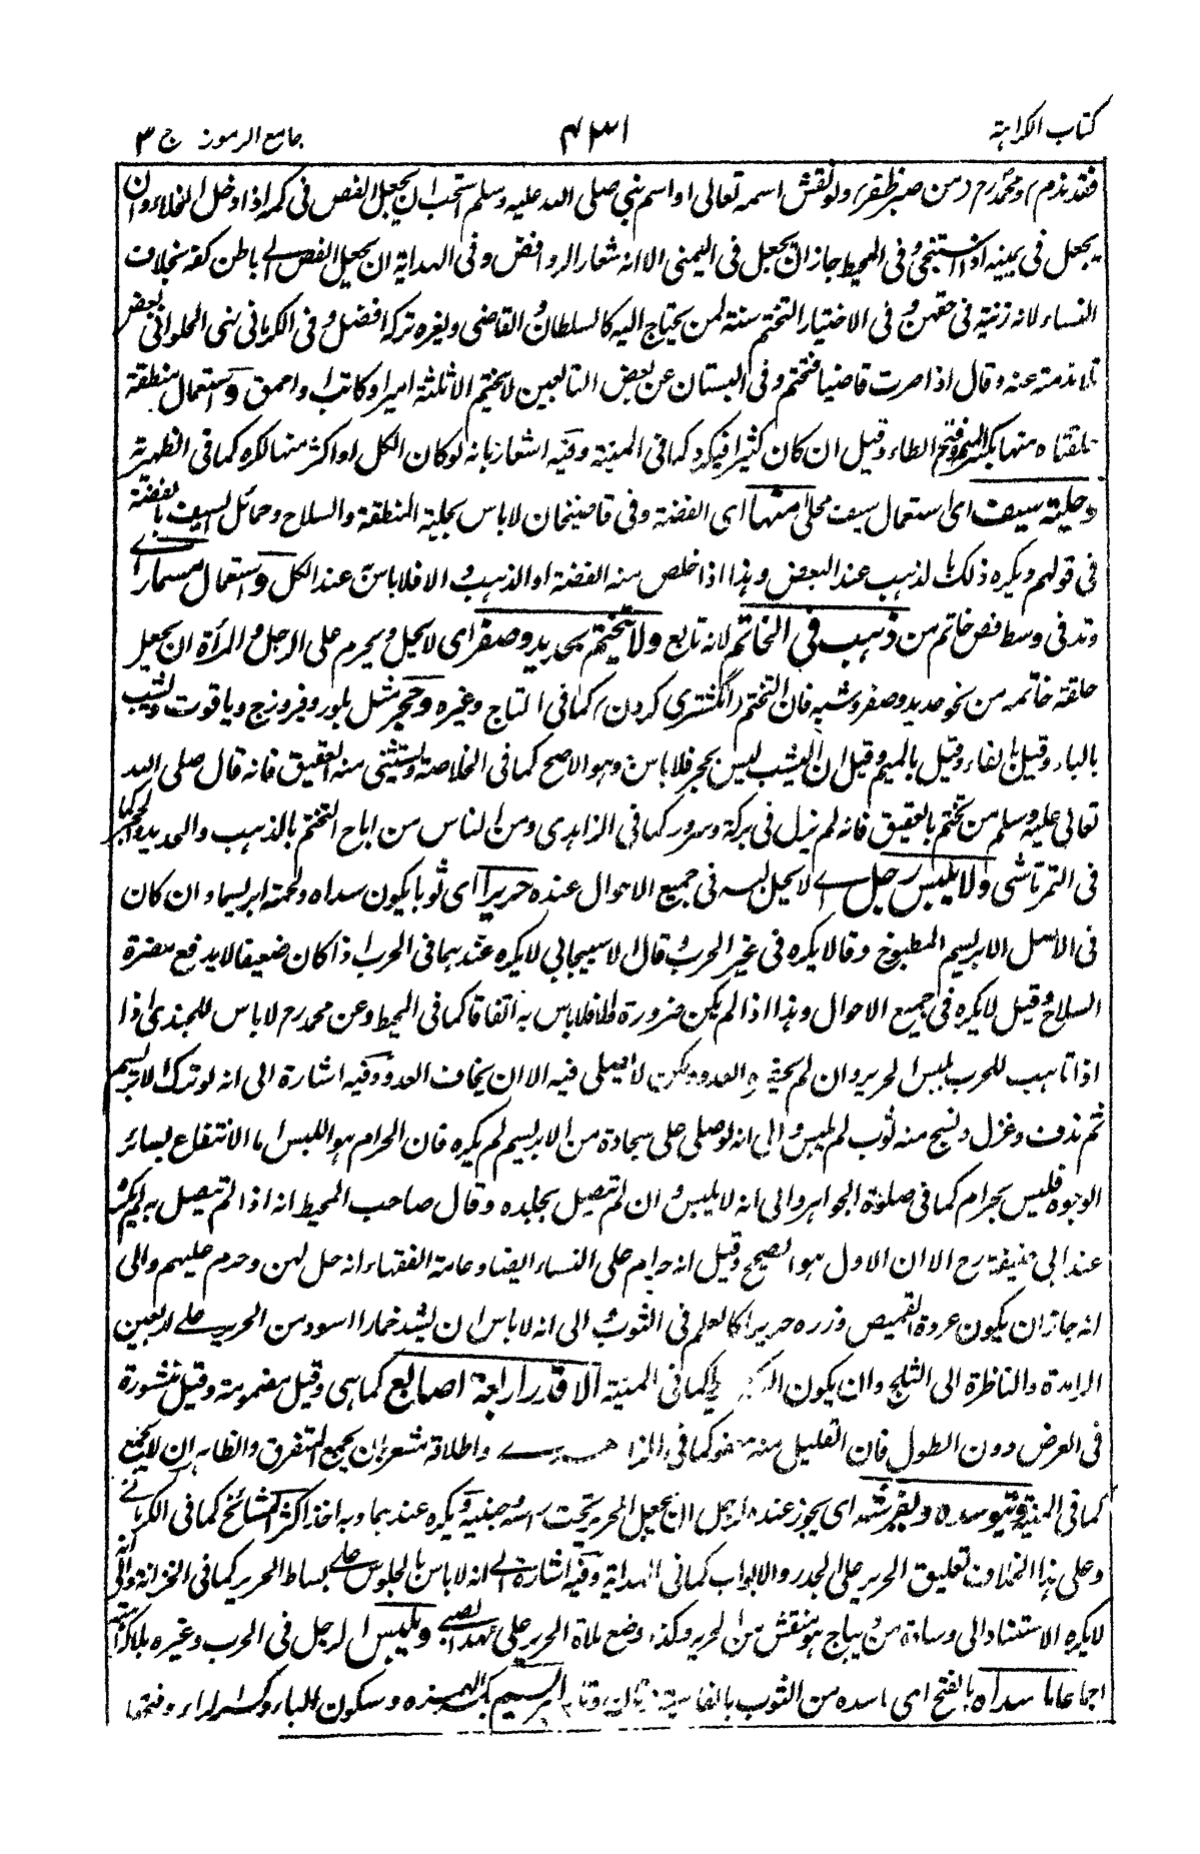 كتاب الكراہتہ ۴۳۱ جامع الرموز ج ۳
ولو نقش اسمه تعالى او اسم نبى صلى الله عليه وسلم استحب ان يجعل الفص فى كمه اذا دخل الخلاء وان
يجعل فى يمينه اذا استنجى وفى المحيط جاز ان يجعل فى اليمنى الا انه شعار الروافض وفى الهداية ان يجعل الفص الى باطن كفه بخلاف
النساء لانه زينة فى حقهن وفى الاختيار التختم سنة لمن يحتاج اليه كالسلطان والقاضى ولغيره تركه افضل وفى الكرمانى نهى الحلوائى بعض
تلامذته عنه وقال اذا صرت قاضيا فتختم وفى البستان عن بعض التابعين لا يختم الا ثلثة امير او كاتب او احمق واستعمال منطقة
منها بكسر الميم وفتح الطاء وقيل ان كان كثيرا فيكره كما فى المنية وفيه اشعار بانه لو كان الكل او اكثر منها لكره كما فى الظهيرية
وحلية سيف اى استعمال سيف محلى منها اى الفضة وفى قاضيخان لا باس بحلية المنطقة والسلاح وحمائل السيف بالفضة
فى قولهم ويكره ذلك بالذهب عند البعض وهذا اذا خلص منه الفضة او الذهب والا فلا باس عند الكل واستعمال مسمار اے
وتد فى وسط فص خاتم من ذهب فى الخاتم لانه تابع ولا يتختم بحديد وصفر اى لا يحل ويحرم على الرجل والمرأة ان يجعل
حلقة خاتمه من نحو حديد وصفر وشبه فان التختم (انگشترى كردن) كما فى التاج وغيره وحجر مثل بلور وفيروزج وياقوت ويشب
بالباء وقيل بالفاء وقيل بالميم وقيل ان اليشب ليس بحجر فلا باس وهو الاصح كما فى الخلاصة ويستثنى منه العقيق فانه قال صلى الله
تعالى عليه وسلم من تختم بالعقيق فانه لم يزل فى بركة وسرور كما فى الزاهدى ومن الناس من اباح التختم بالذهب والحديد والحجر كما
فى التمرتاشى ولا يلبس رجل اے لا يحل لبسه فى جميع الاحوال عنده حريرا اى ثوبا يكون سداه ولحمته ابريسما وان كان
فى الاصل الابريسم المطبوخ وقالا يكره فى غير الحرب وقال الاسبيجابى لا يكره عندهما فى الحرب اذا كان ضعيفا لا يدفع مضرة
السلاح وقيل لا يكره فى جميع الاحوال وهذا اذا لم يكن ضرورة والا فلا باس به اتفاقا كما فى المحيط وعن محمد رح لا باس للجندى اذا
اذا تاهب للحرب بلبس الحرير وان لم يحضره العدو ولكن لا يصلى فيه الا ان يخاف العدو وفيه اشارة الى انه لو ترك الابريسم
ثم ندف وغزل ونسج منه ثوب لم يلبس والى انه لو صلى على سجادة من الابريسم لم يكره فان الحرام هو اللبس اما الانتفاع بسائر
الوجوه فليس بحرام كما فى صلوة الجواهر والى انه لا يلبس وان لم يتصل بجلده وقال صاحب المحيط انه اذا لم يتصل به لم يكره
عند ابى حنيفة رح الا ان الاول هو الصحيح وقيل انه حرام على النساء ايضا وعامة الفقهاء انه حل لهن وحرم عليهم والى
انه جاز ان يكون عروة القميص وزره حريرا كالعلم فى الثوب والى انه لا باس ان يشد خمارا اسود من الحرير على العين
الرامدة والناظرة الى الثلج وان يكون كما فى المنية الا قدر اربعة اصابع كما هى وقيل مضمومة وقيل منشورة
فى العرض دون الطول فان القليل منه عفو كما فى الزاهدے واطلاقه مشعر بان يجمع المتفرق والظاهر ان لا يجمع
كما فى المنية ويتوسده ويفترشه اى يجوز عنده للرجل ان يجعل الحرير تحت راسه وجنبيه ويكره عندهما وبه اخذ اكثر المشائخ كما فى الكرمانے
وعلى هذا الخلاف تعليق الحرير على الجدر والابواب كما فى الهداية وفيه اشارة الى انه لا باس بالجلوس على بساط الحرير كما فى الخزانة والى انه
لا يكره الاستناد الى وسادة من ديباج هو منقش من الحرير وكذا وضع ملاة الحرير على مهد الصبى ويلبس الرجل فى الحرب وغيره بلا كراهة
اجماعا ما سداه بالفتح اى ما سده من الثوب ابريسم بكسر الهمزه وسكون الباء وكسر الراء وفتحها